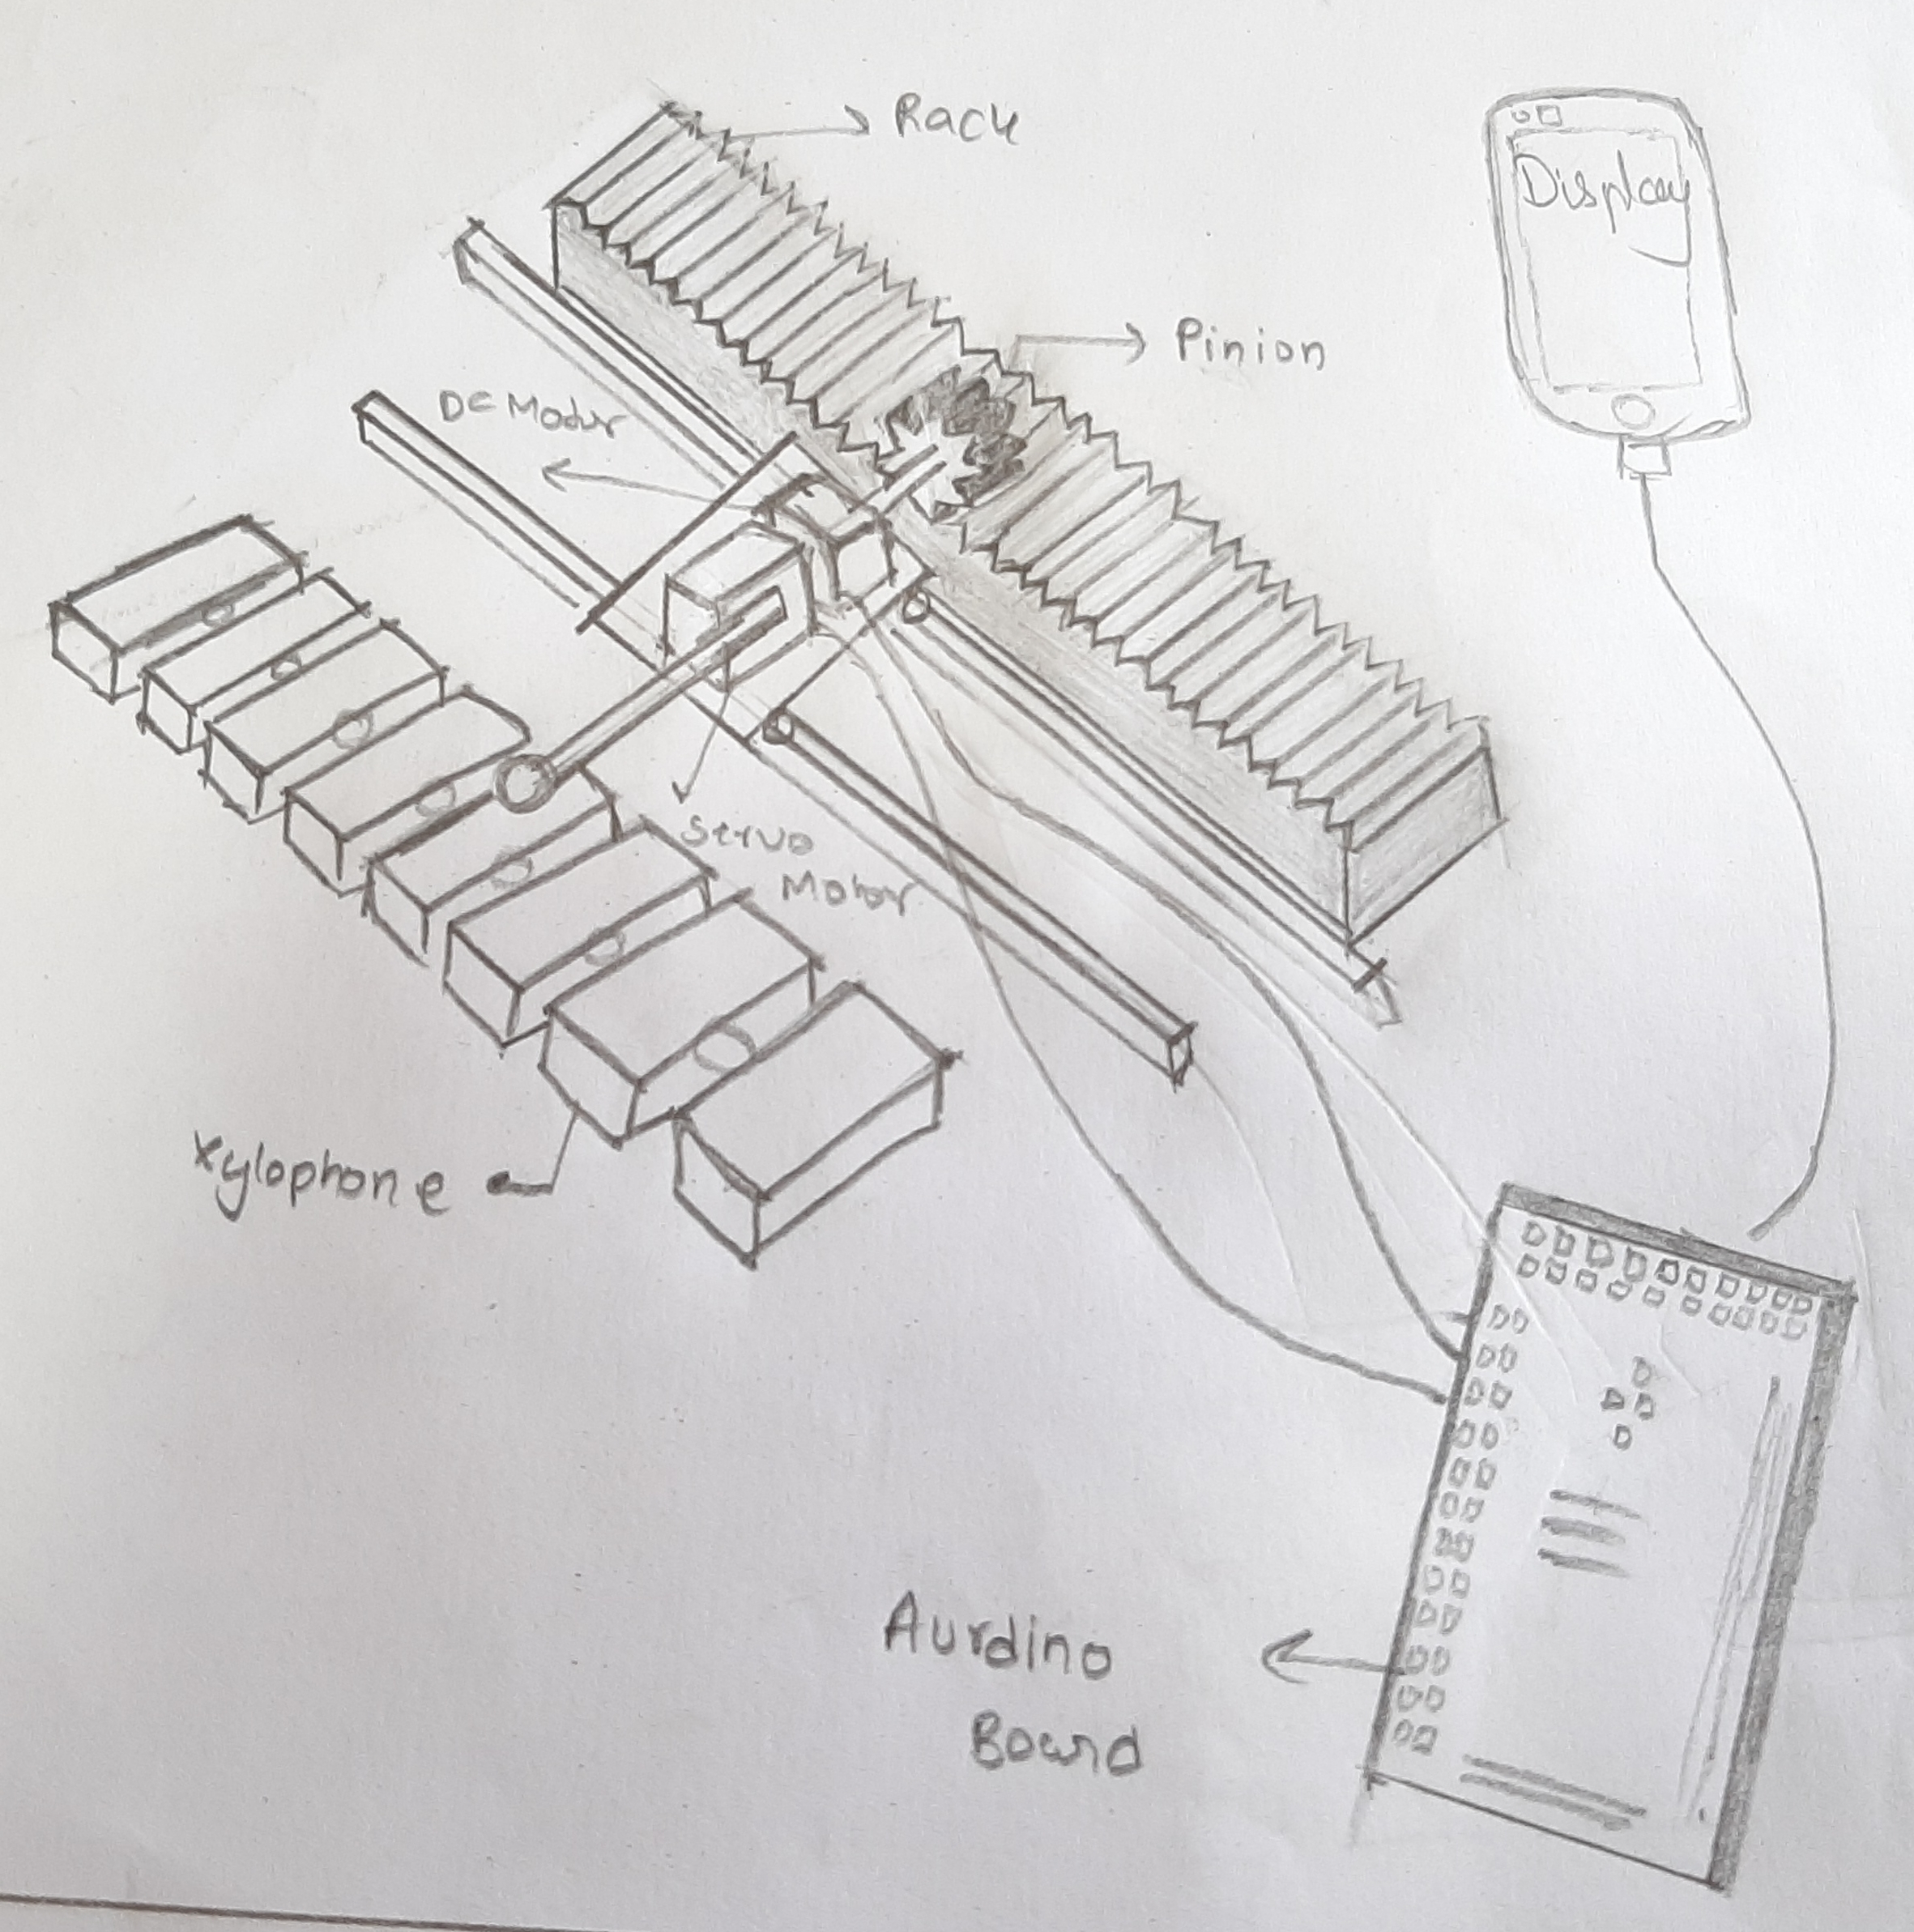 Rack
Display
Pinion
DC Motor
Servo
Motor
Xylophone
Aurdino
Board